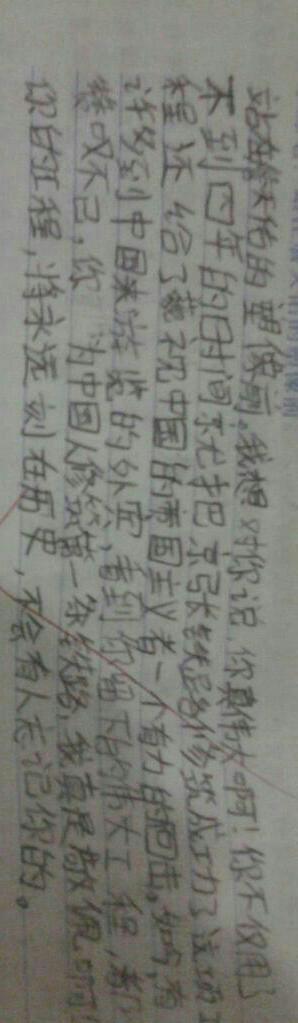 站在詹天佑的塑像前。我想对你说，你真伟大啊！你不仅用了
不到四年的时间就把京张铁路修筑成功了这项工
程还给了藐视中国的帝国主义者一个有力的回击。如今，有
许多到中国来游览的外宾，看到你留下的伟大工程，都
赞叹不已，你为中国人修筑第一条铁路，我真是敬佩啊！
你的工程，将永远刻在历史，不会有人忘记你的。